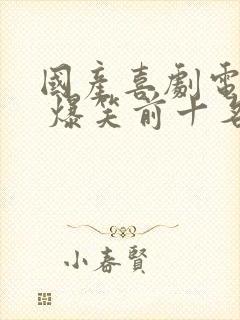 國產喜劇電
爆笑前十名
小春賢